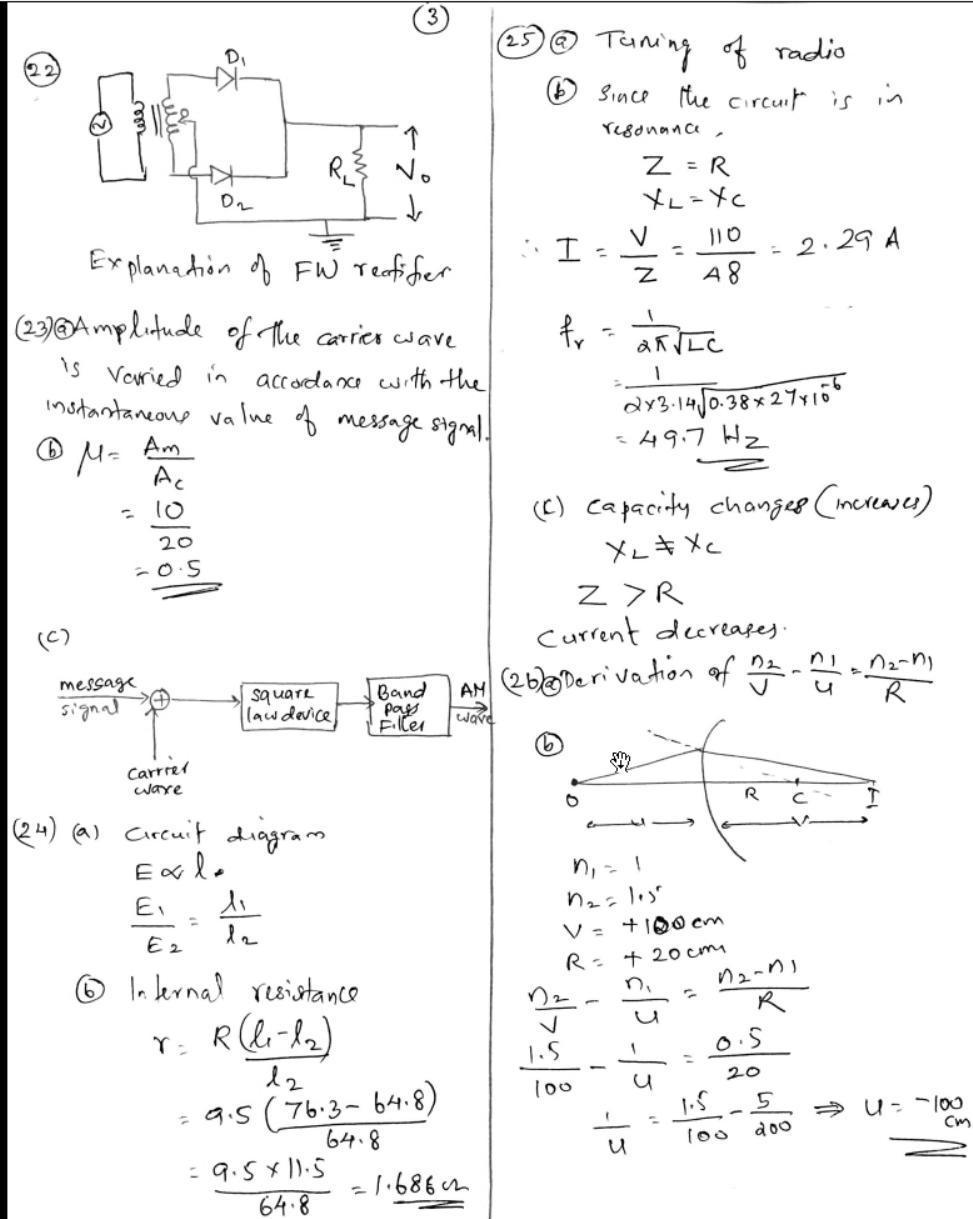 (3)
(22)
D1
RL
Vo
D2
Explanation of FW rectifier
(23) (a) Amplitude of the carrier wave
is varied in accordance with the
instantaneous value of message signal.
(b) μ = Am / Ac
= 10 / 20
= 0.5
(c)
message
signal
+
square
law device
Band
pass
Filter
AM
wave
carrier
wave
(24) (a) Circuit diagram
E ∝ l.
E1 / E2 = l1 / l2
(b) Internal resistance
r = R (l1 - l2) / l2
= 9.5 (76.3 - 64.8) / 64.8
= 9.5 × 11.5 / 64.8 = 1.686 Ω
(25) (a) Tuning of radio
(b) Since the circuit is in
resonance,
Z = R
XL = XC
∴ I = V / Z = 110 / 48 = 2.29 A
fr = 1 / 2π√LC
= 1 / 2×3.14√0.38×27×10^-6
= 49.7 Hz
(c) capacity changes (increases)
XL ≠ XC
Z > R
Current decreases.
(26) (a) Derivation of n2/v - n1/u = n2-n1 / R
(b)
O
R
C
I
u
v
n1 = 1
n2 = 1.5
V = +100 cm
R = +20 cm
n2/v - n1/u = n2-n1 / R
1.5/100 - 1/u = 0.5/20
1/u = 1.5/100 - 5/200 ⇒ u = -100
cm